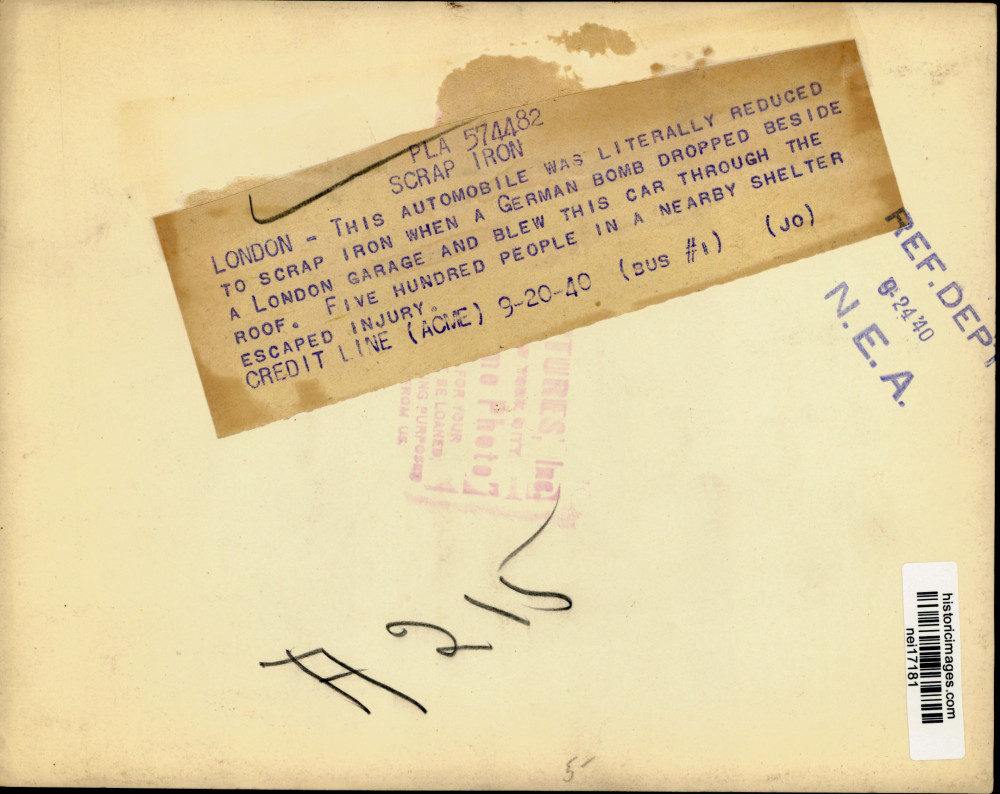 PLA 574482
SCRAP IRON
LONDON - THIS AUTOMOBILE WAS LITERALLY REDUCED
TO SCRAP IRON WHEN A GERMAN BOMB DROPPED BESIDE
A LONDON GARAGE AND BLEW THIS CAR THROUGH THE
ROOF. FIVE HUNDRED PEOPLE IN A NEARBY SHELTER
ESCAPED INJURY.
CREDIT LINE (ACME) 9-20-40 (BUS #1) (JO)
REF. DEPT
9-24'40
N.E.A.
TURES, Inc
YORK CITY
Photo
FOR YOUR
SE LOANED,
NG PURPOSES
FROM US.
historicimages.com
nei17181
5